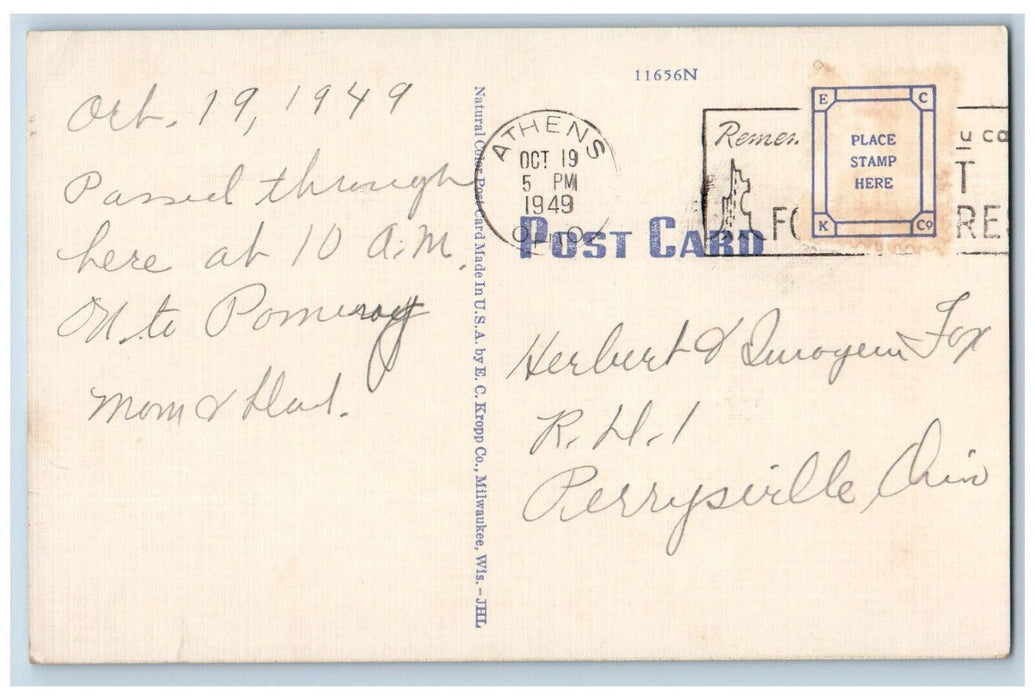 Oct. 19, 1949
Passed through
here at 10 A.M.
On to Pomeroy
Mom & Dad.
Natural Color Post Card Made In U.S.A. by E. C. Kropp Co., Milwaukee, Wis. – JHL
11656N
ATHENS
OCT 19
5 PM
1949
OHIO
POST CARD
E C
PLACE
STAMP
HERE
K Co
Herbert & Fox
R. D. 1
Perrysville, Ohio